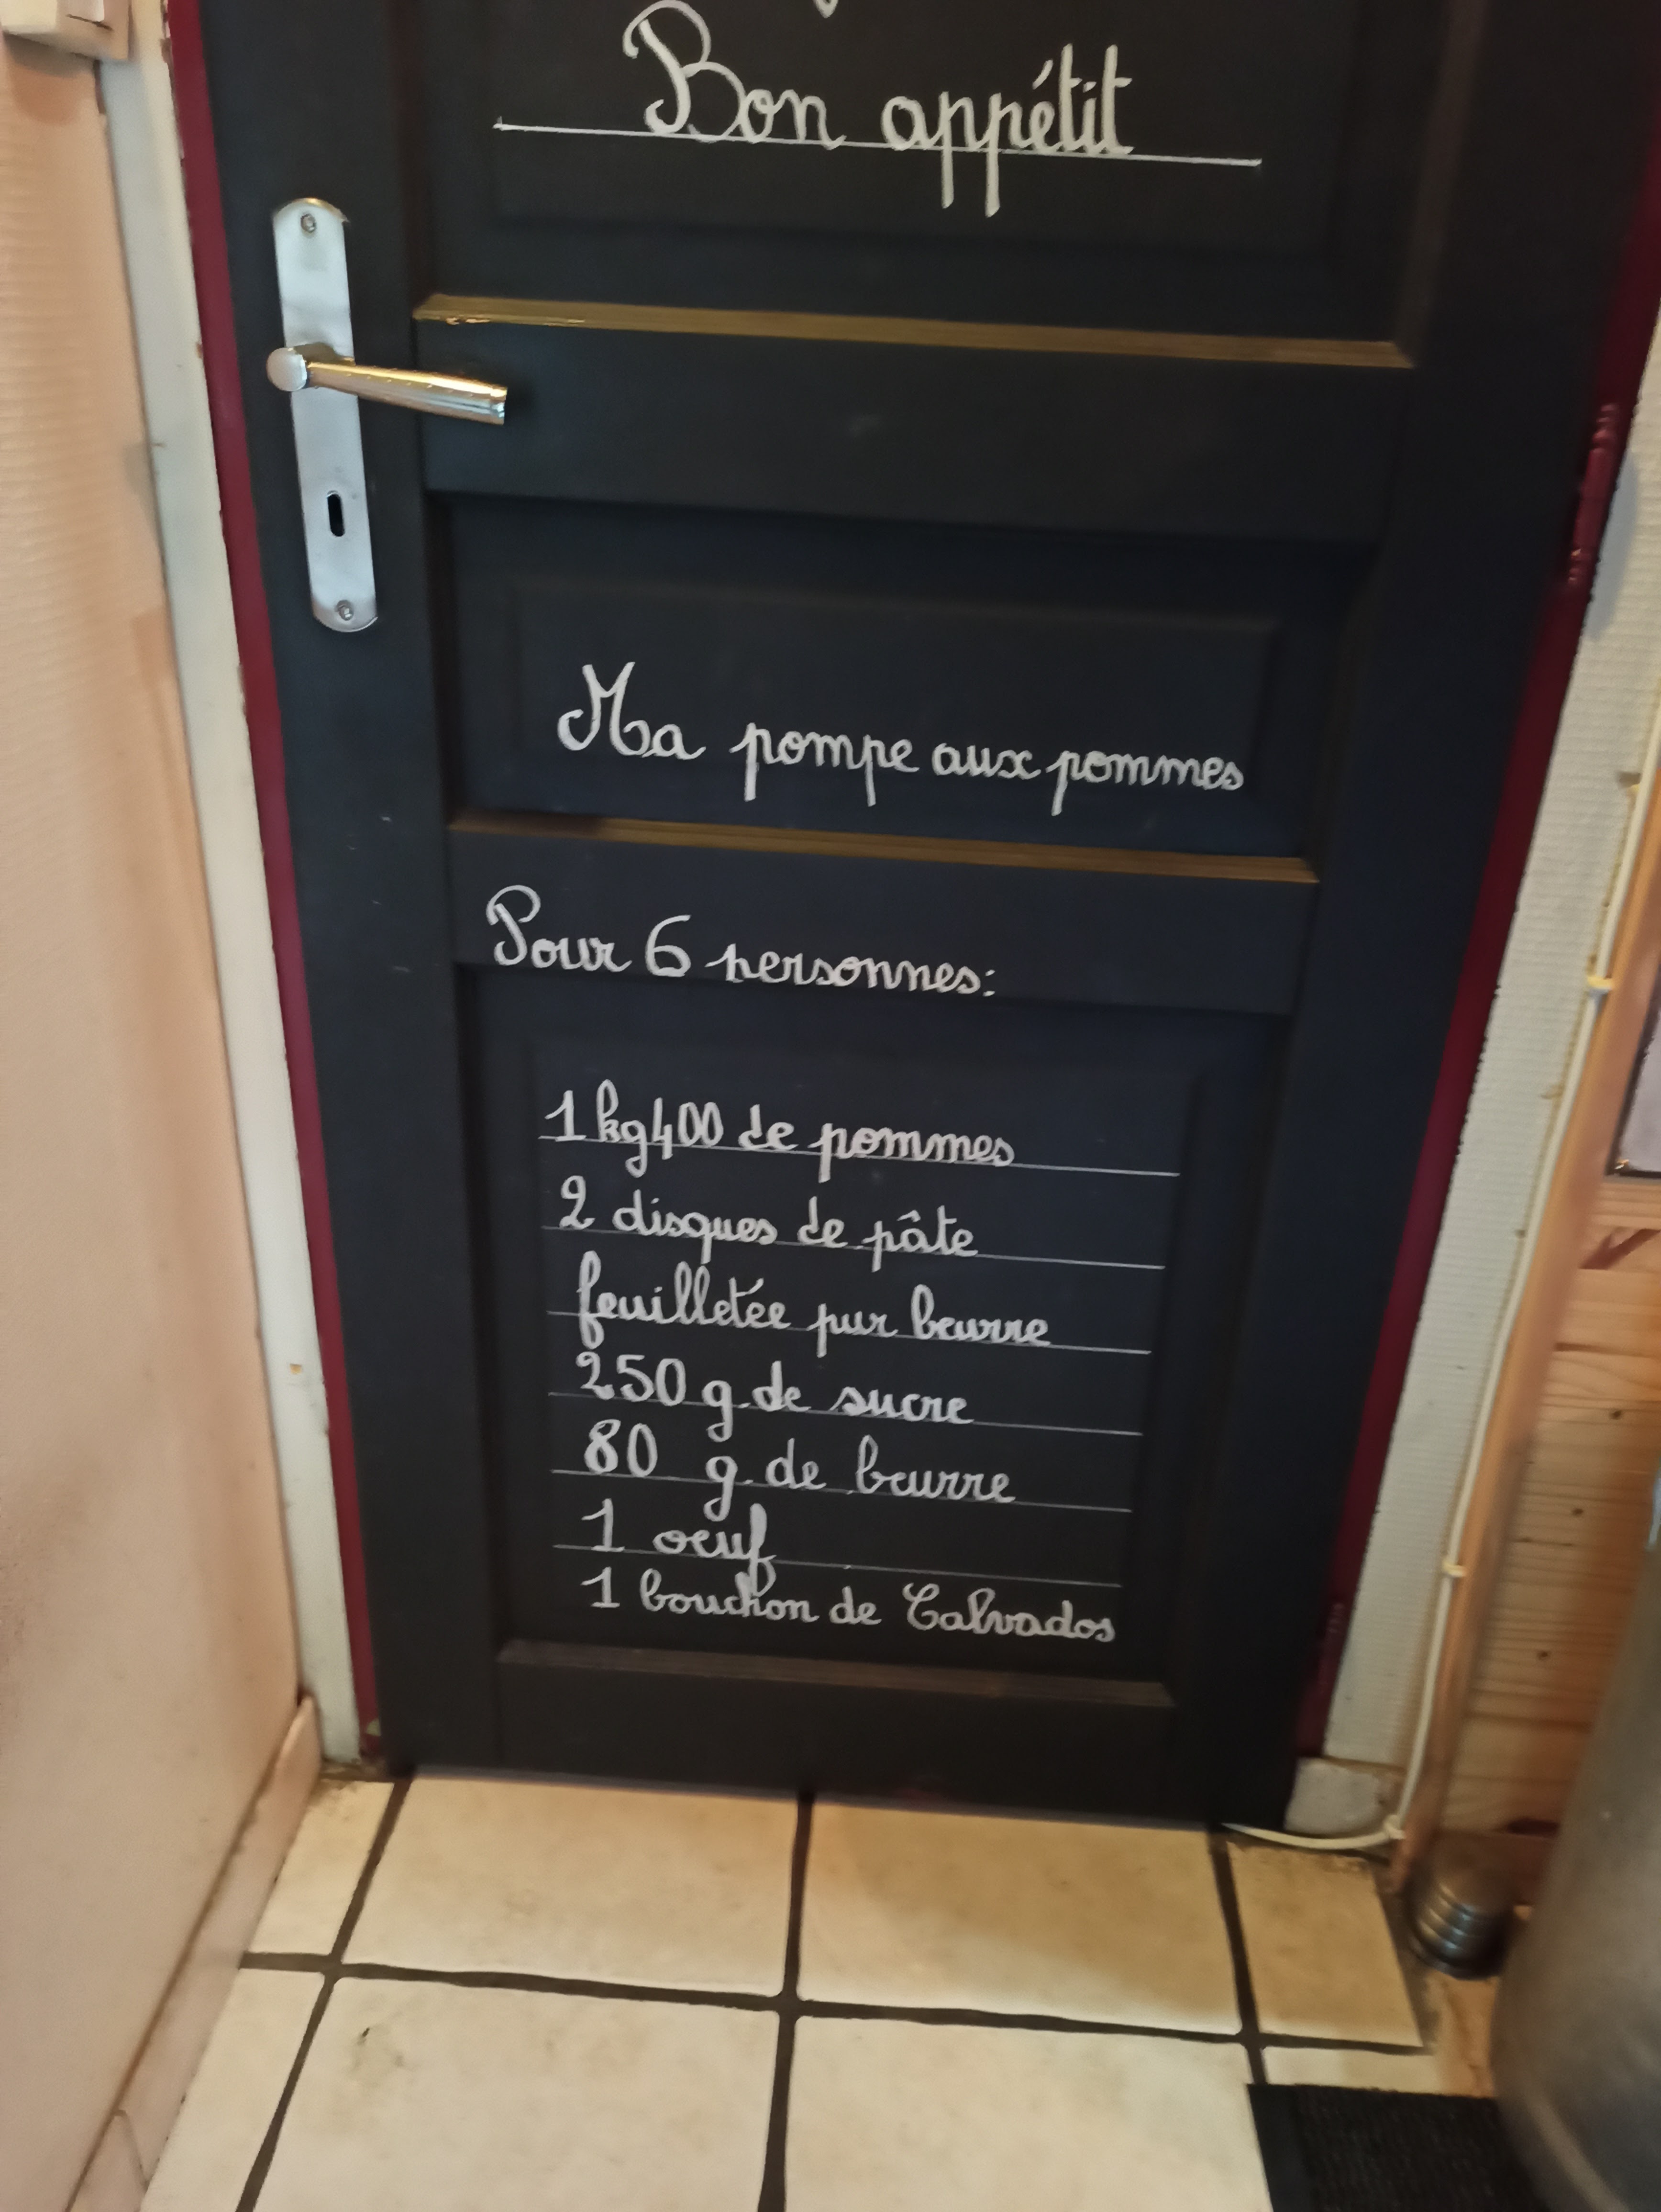 Bon appétit
Ma pompe aux pommes
Pour 6 personnes:
1kg400 de pommes
2 disques de pâte
feuilletée pur beurre
250 g de sucre
80 g de beurre
1 oeuf
1 bouchon de Calvados